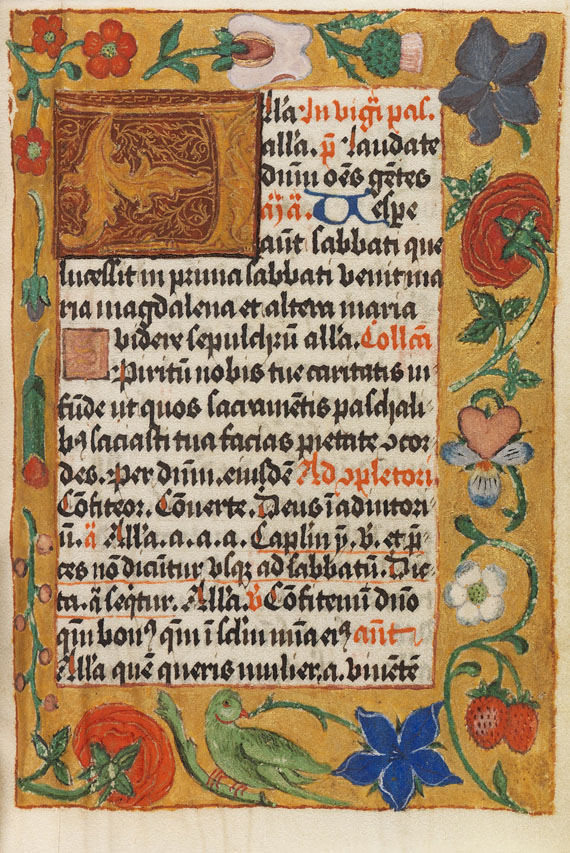 lla In vigi pas.
alla. p̄ laudate
dnm̄ oēs gētes
aīa. Vespe
aūt sabbati que
lucessit in prima sabbati venit ma
ria magdalena et altera maria
videre sepulchrū alla. Collcā
Spiritū nobis tue caritatis in
fūde ut quos sacramētis paschali
bꝰ saciasti tua facias pietate ꝯcor
des. Per dnm̄. eiusdē Ad ꝯpletori.
Cōfiteor. Cōuerte. Deus ī adiutori
ū. ā Alla. a. a. a. Caplm̄ ȳ. v̄. et p̄
ces nō dicūtur vsqꝫ ad sabbatū. Dic
ta. ā seqͥtur. Alla. v̄ Cōfitemī dnō
qm̄ bonꝰ qm̄ ī sclm̄ mīa eiꝰ ant
Alla quē queris mulier. a. viuētē